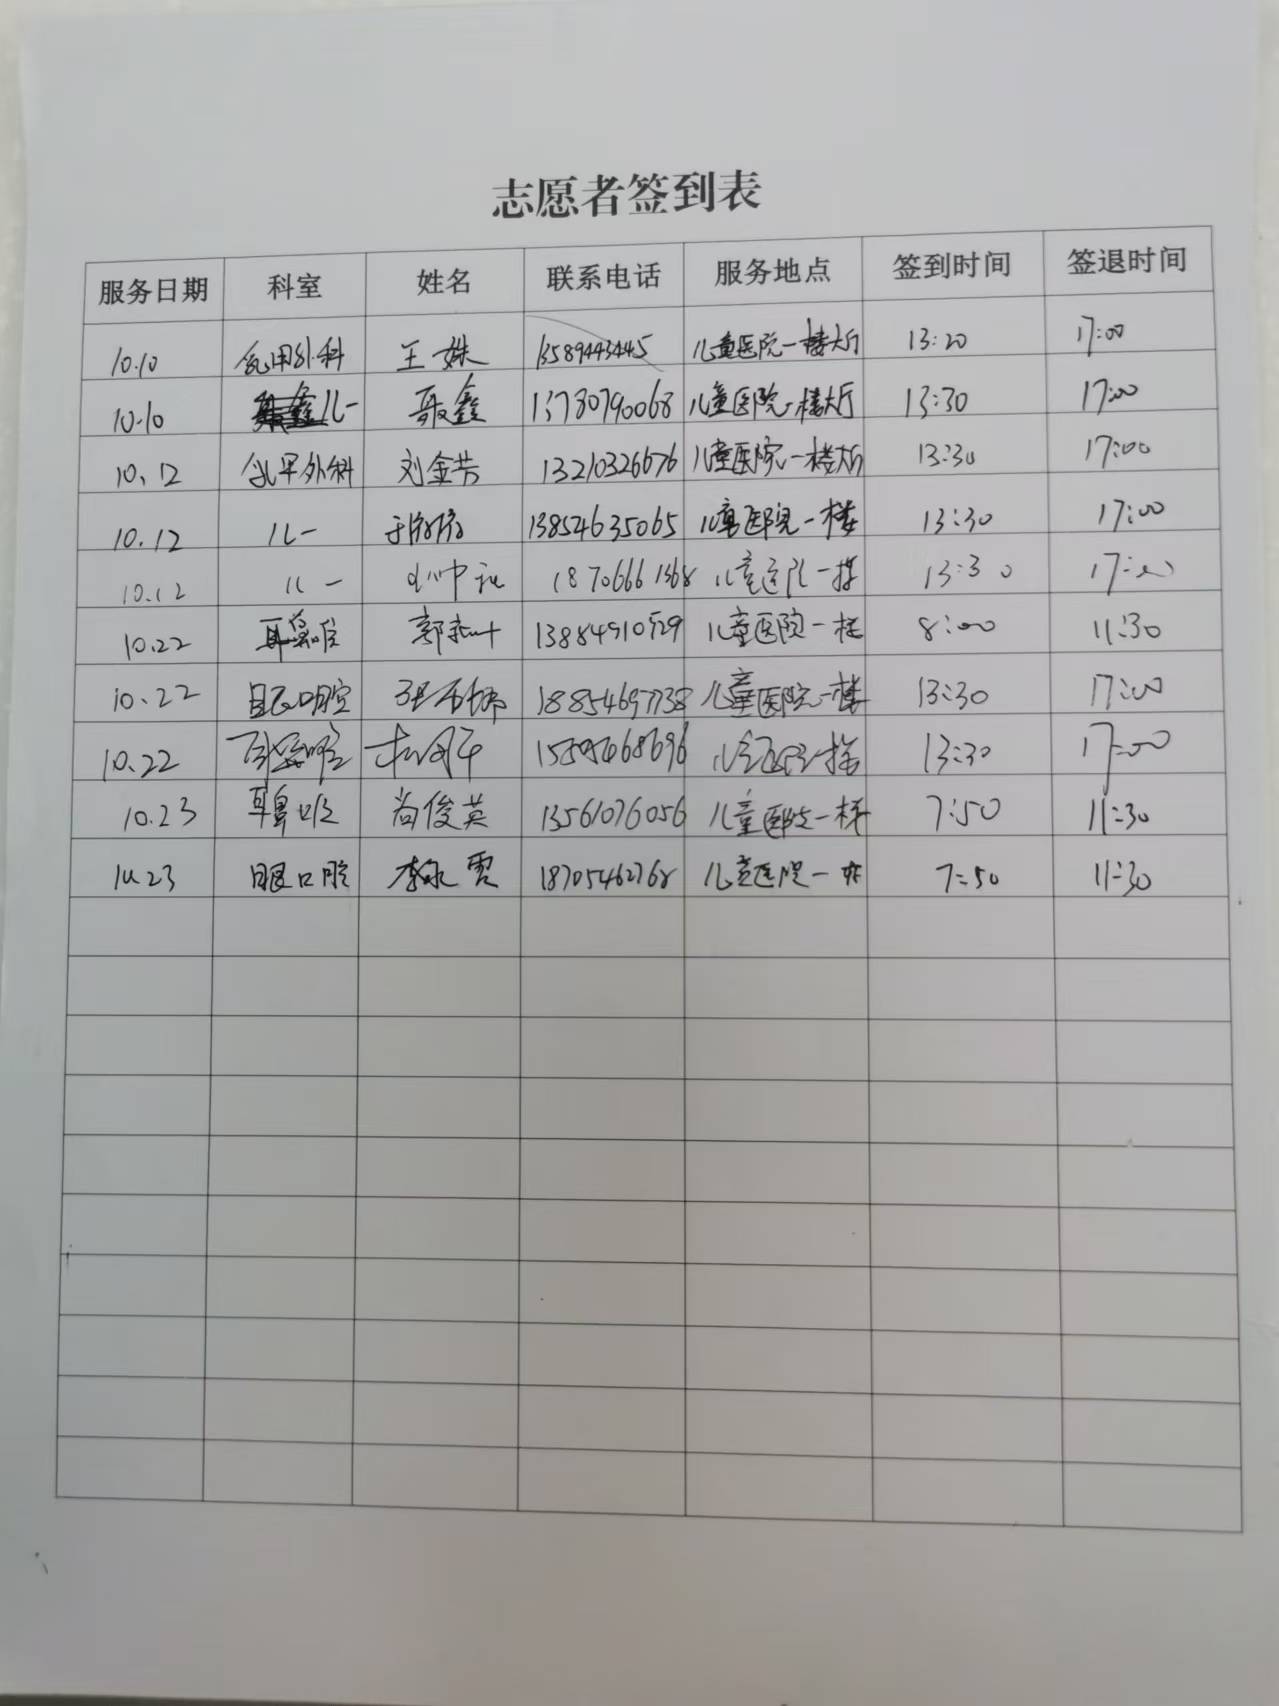 志愿者签到表
服务日期 科室 姓名 联系电话 服务地点 签到时间 签退时间
10.10 外科 王姝 13589443445 儿童医院一楼大厅 13:20 17:00
10.10 儿一 鑫 13780790068 儿童医院一楼大厅 13:30 17:00
10.12 乳甲外科 刘金芳 13210326676 儿童医院一楼大厅 13:30 17:00
10.12 儿一 13854635065 儿童医院一楼 13:30 17:00
10.12 儿一 18706661368 儿童医院一楼 13:30 17:00
10.22 耳鼻喉 郭 儿童医院一楼 8:00 11:30
10.22 眼口腔 18854697738 儿童医院一楼 13:30 17:00
10.22 13:30 17:00
10.23 耳鼻喉 尚俊英 13561076056 儿童医院一楼 7:50 11:30
10.23 眼口腔 李永霞 18705462768 儿童医院一 7:50 11:30